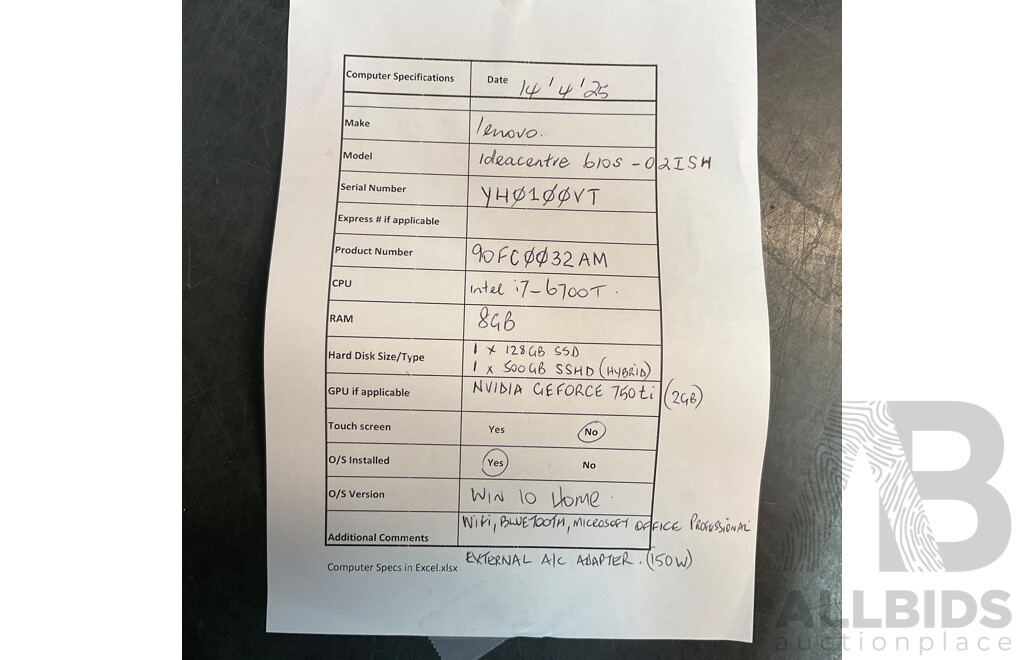 Computer Specifications Date 14/4/25
Make lenovo.
Model Ideacentre 610S-02ISH
Serial Number YH0100VT
Express # if applicable
Product Number 90FC0032AM
CPU intel i7-6700T.
RAM 8GB
Hard Disk Size/Type 1 x 128GB SSD
1 x 500GB SSHD (HYBRID)
GPU if applicable NVIDIA GEFORCE 750ti (2GB)
Touch screen Yes No
O/S Installed Yes No
O/S Version WIN 10 Home.
WiFi, BLUETOOTH, MICROSOFT OFFICE PROFESSIONAL
Additional Comments
EXTERNAL A/C ADAPTER. (150W)
Computer Specs in Excel.xlsx
AB
ALLBIDS
auctionplace